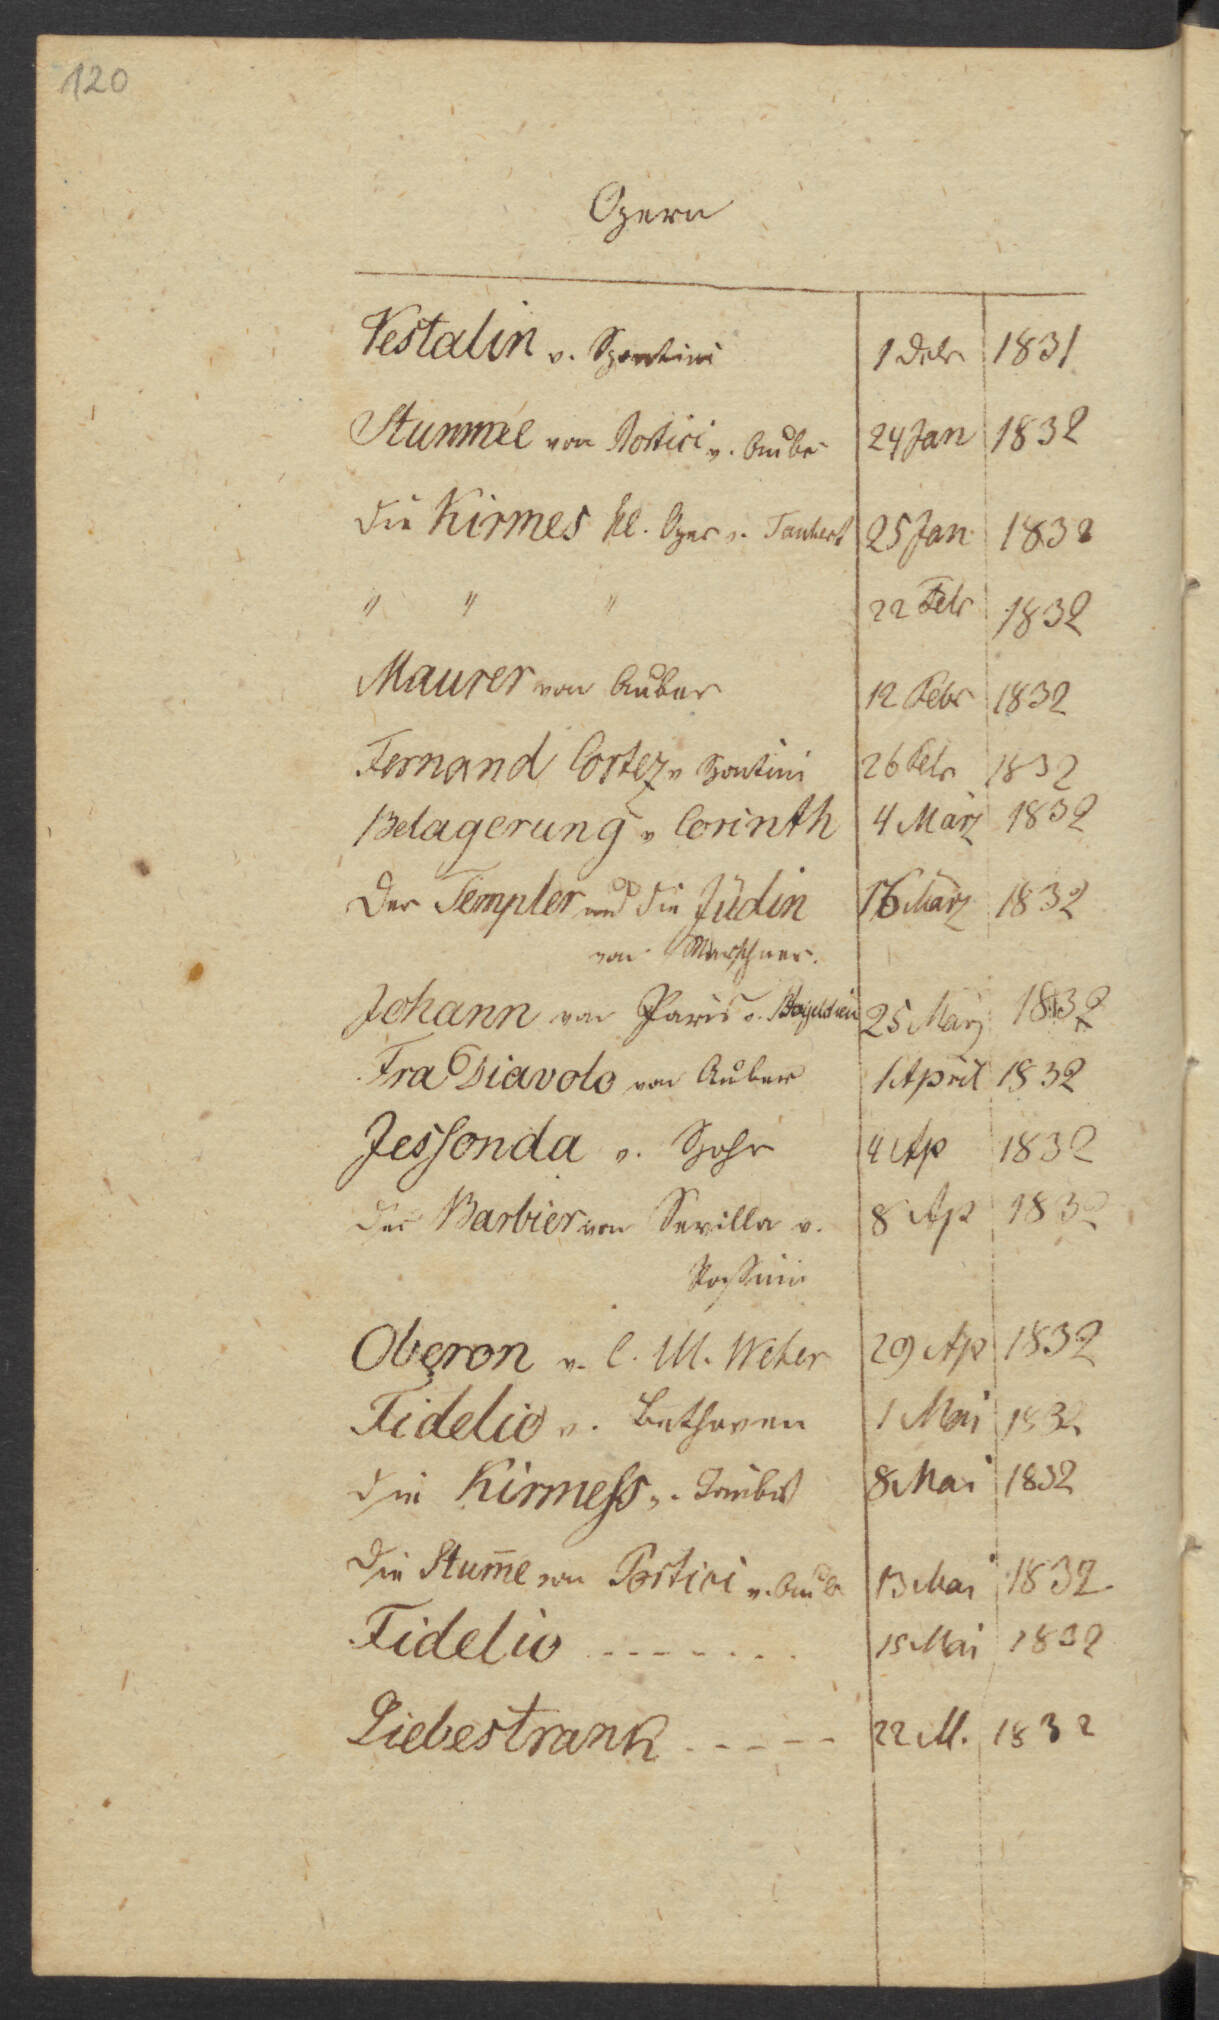 120
Opern
Vestalin v. Spontini 1 Debr 1831
Stumme von Portici v. Auber 24 Jan 1832
Die Kirmes kl. Oper v. Taubert 25 Jan 1832
" " " 22 Febr 1832
Maurer von Auber 12 Febr 1832
Fernand Cortez v Spontini 26 Febr 1832
Belagerung v Corinth 4 März 1832
Der Templer und die Jüdin 16 März 1832
von Marschner.
Johann von Paris v. Boieldieu 25 März 1832
Fra Diavolo von Auber 1 April 1832
Jessonda v. Spohr 4 Ap 1832
Der Barbier von Sevilla v. 8 Ap 1832
Rossini
Oberon v. C. M. Weber 29 Ap 1832
Fidelio v. Bethoven 1 Mai 1832
Die Kirmess v. Taubert 8 Mai 1832
Die Stum̅e von Portici v. Aub 13 Mai 1832
Fidelio - - - - - - - 15 Mai 1832
Liebestrank - - - - - 22 M. 1832